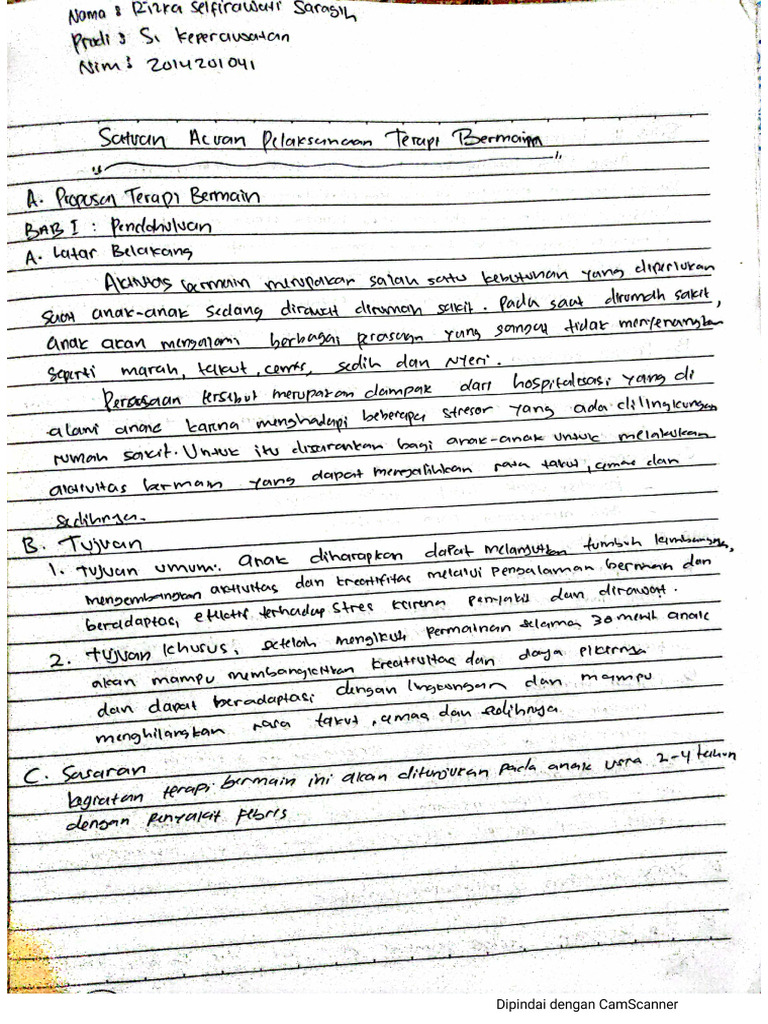 Nama : Rizka Selfirawati Saragih
Prodi : S1 Keperawatan
Nim : 2014201041
Satuan Acuan Pelaksanaan Terapi Bermain
A. Proposan Terapi Bermain
BAB I : Pendahuluan
A. Latar Belakang
Aktivitas bermain merupakan salah satu kebutuhan yang diperlukan
saat anak-anak sedang dirawat dirumah sakit. Pada saat dirumah sakit,
anak akan mengalami berbagai perasaan yang sangat tidak menyenangkan
seperti marah, takut, cemas, sedih dan Nyeri.
Perasaan tersebut merupakan dampak dari hospitalisasi yang di
alami anak karna menghadapi beberapa stresor yang ada dilingkungan
rumah sakit. Untuk itu disarankan bagi anak-anak untuk melakukan
aktivitas bermain yang dapat mengalihkan rasa takut, cemas dan
sedihnya.
B. Tujuan
1. Tujuan umum: anak diharapkan dapat melanjutkan tumbuh kembangnya,
mengembangkan aktivitas dan kreatifitas melalui pengalaman bermain dan
beradaptasi efektif terhadap stres karena penyakit dan dirawat.
2. Tujuan khusus: setelah mengikuti permainan selama 30 menit anak
akan mampu membangkitkan kreativitas dan daya pikirnya
dan dapat beradaptasi dengan lingkungan dan mampu
menghilangkan rasa takut, cemas dan sedihnya.
C. Sasaran
kegiatan terapi bermain ini akan ditunjukan pada anak usia 2-4 tahun
dengan penyakit febris
Dipindai dengan CamScanner